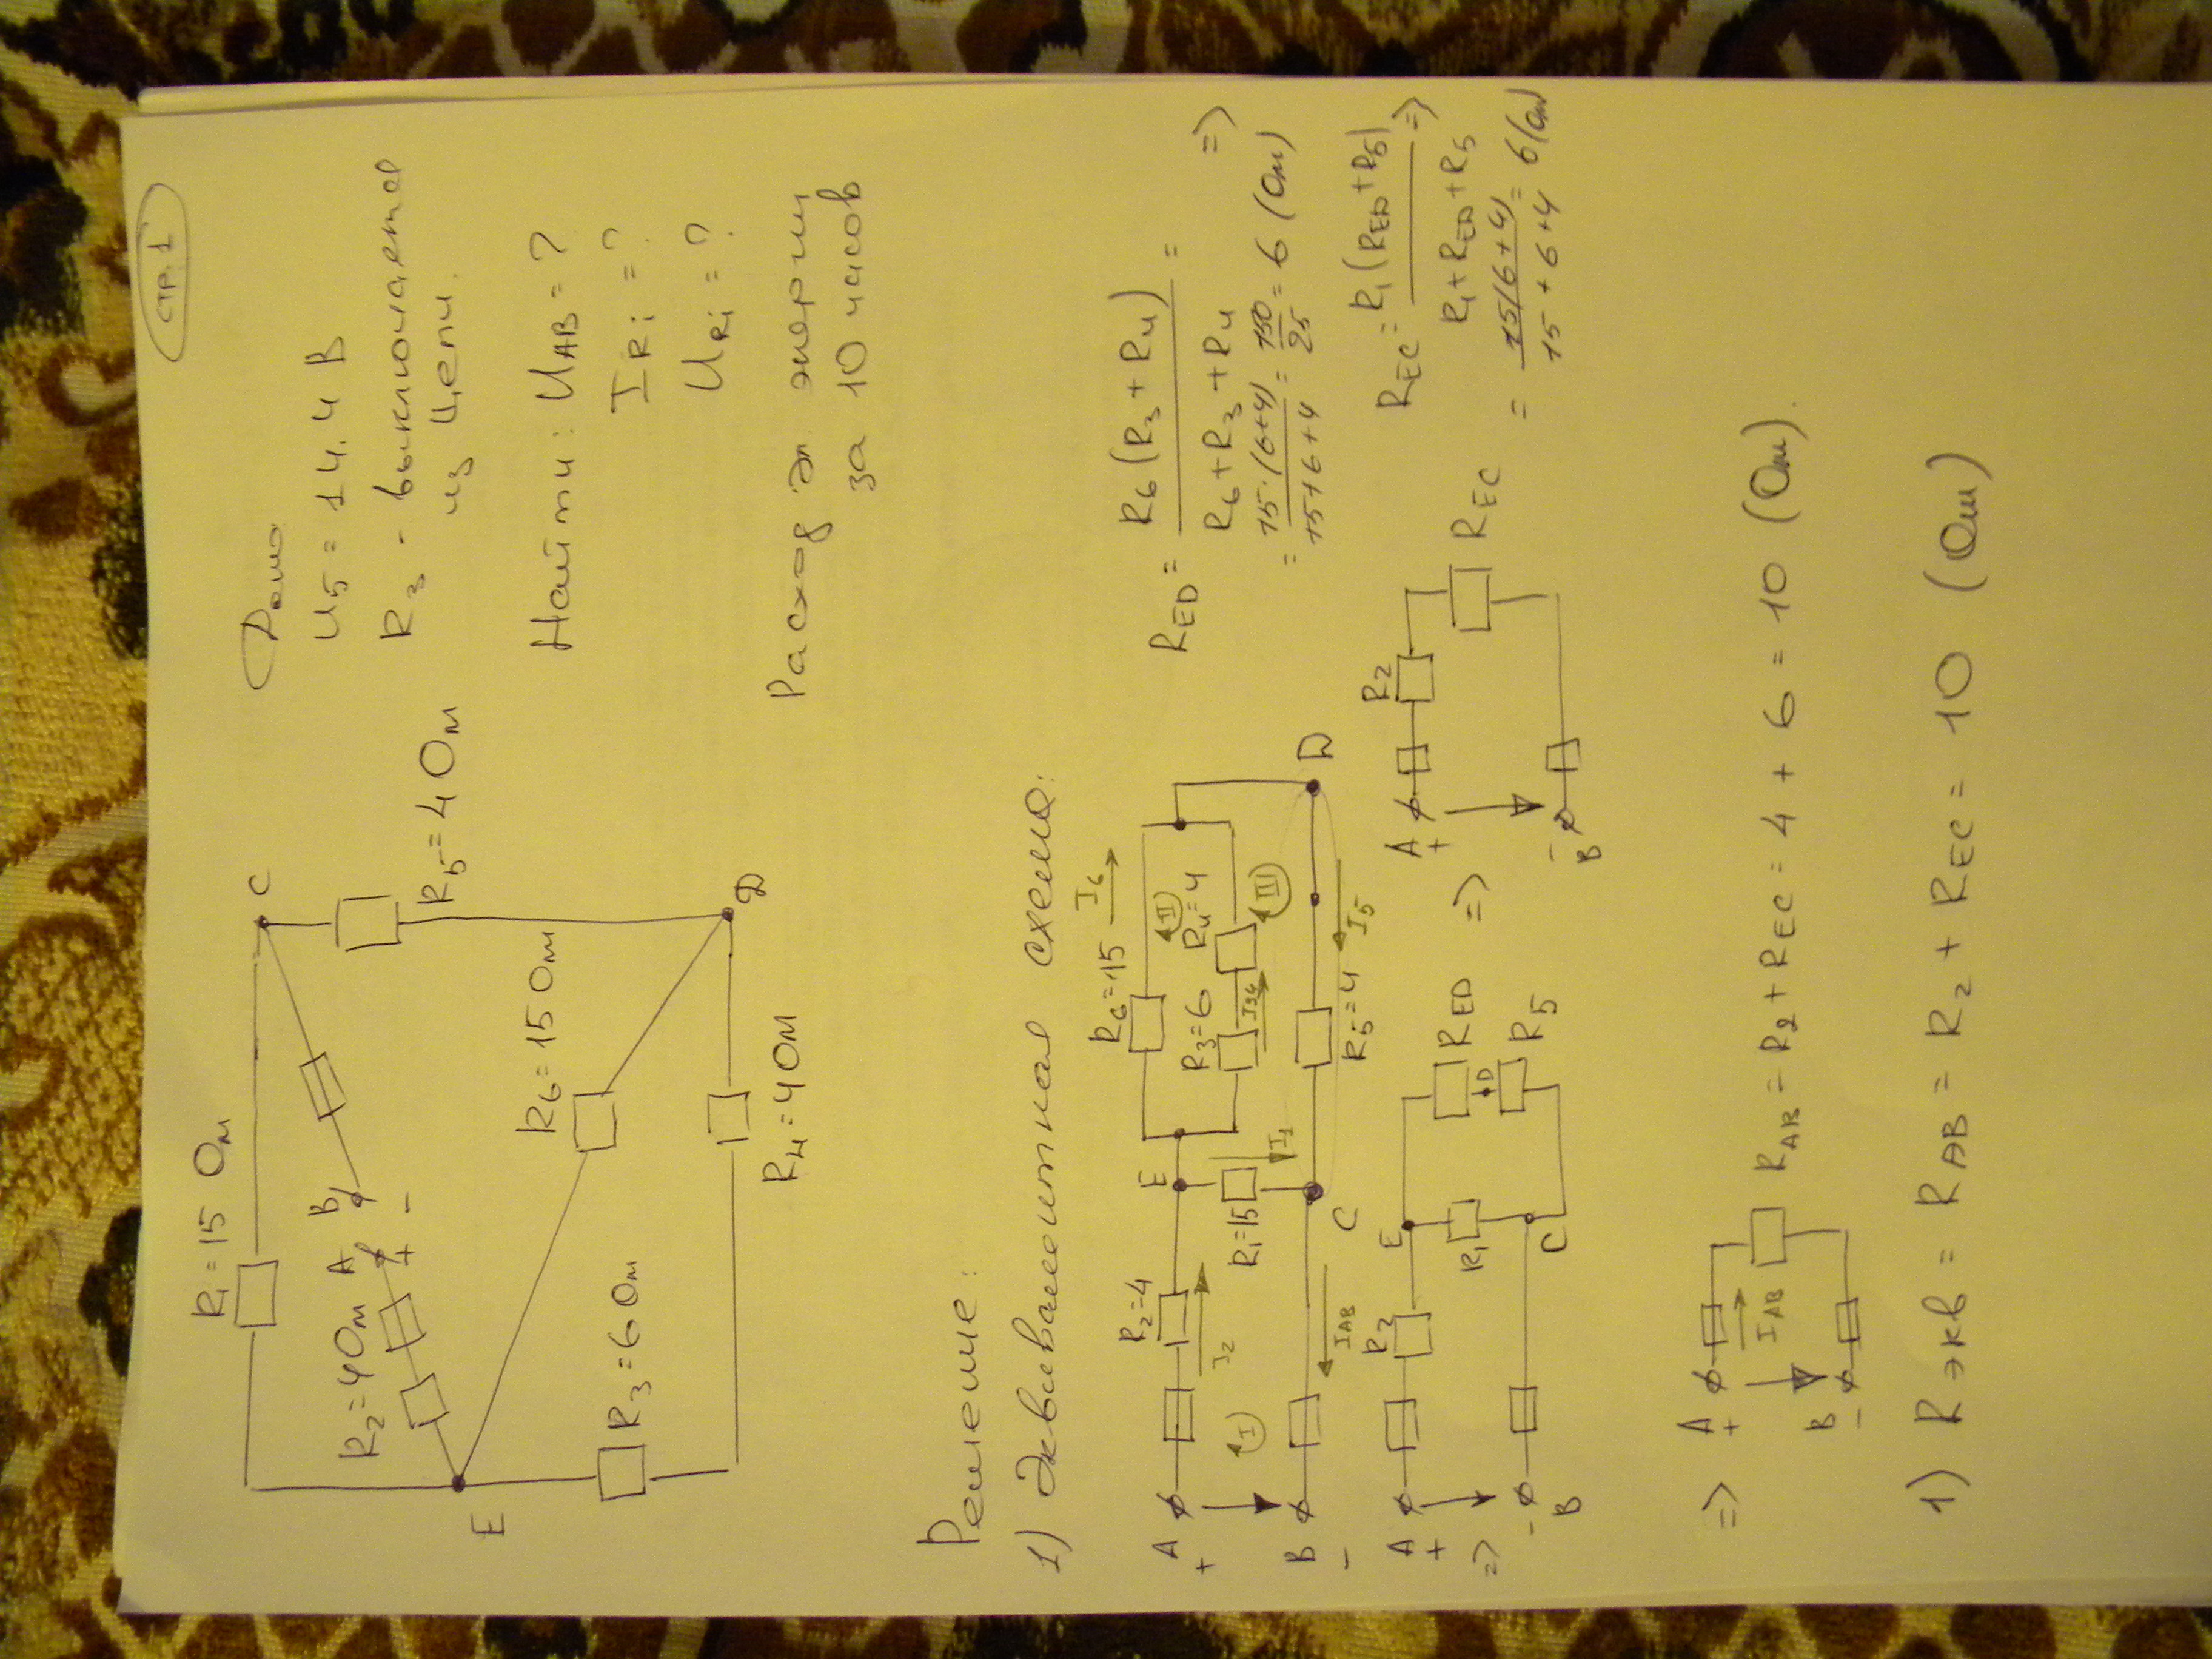 стр. 1
R1 = 15 Ом
C
R2 = 4 Ом
A
B
+
-
R5 = 4 Ом
R6 = 15 Ом
E
R3 = 6 Ом
R4 = 4 Ом
D
Дано
U5 = 14.4 В
R3 - выключается
из цепи.
Найти: UAB = ?
IRi = ?
URi = ?
Расход эл энергии
за 10 часов
Решение:
1) Эквивалентная схема:
A
+
R2=4
I2
E
R6=15
I6
II
R3=6
R4=4
I34
III
I
R1=15
I1
B
-
IAB
C
R5=4
I5
D
RED = R6(R3+R4) / R6+R3+R4 =
= 15·(6+4) / 15+6+4 = 150/25 = 6 (Ом)
=>
=>
A
+
R2
E
RED
R1
D
R5
- B
C
=>
A
+
R2
REC
- B
REC = R1(RED+R5) / R1+RED+R5 =>
= 15(6+4) / 15+6+4 = 6 (Ом)
=>
A
+
IAB
B
-
RAB = R2 + REC = 4 + 6 = 10 (Ом).
1) Rэкв = RAB = R2 + REC = 10 (Ом)